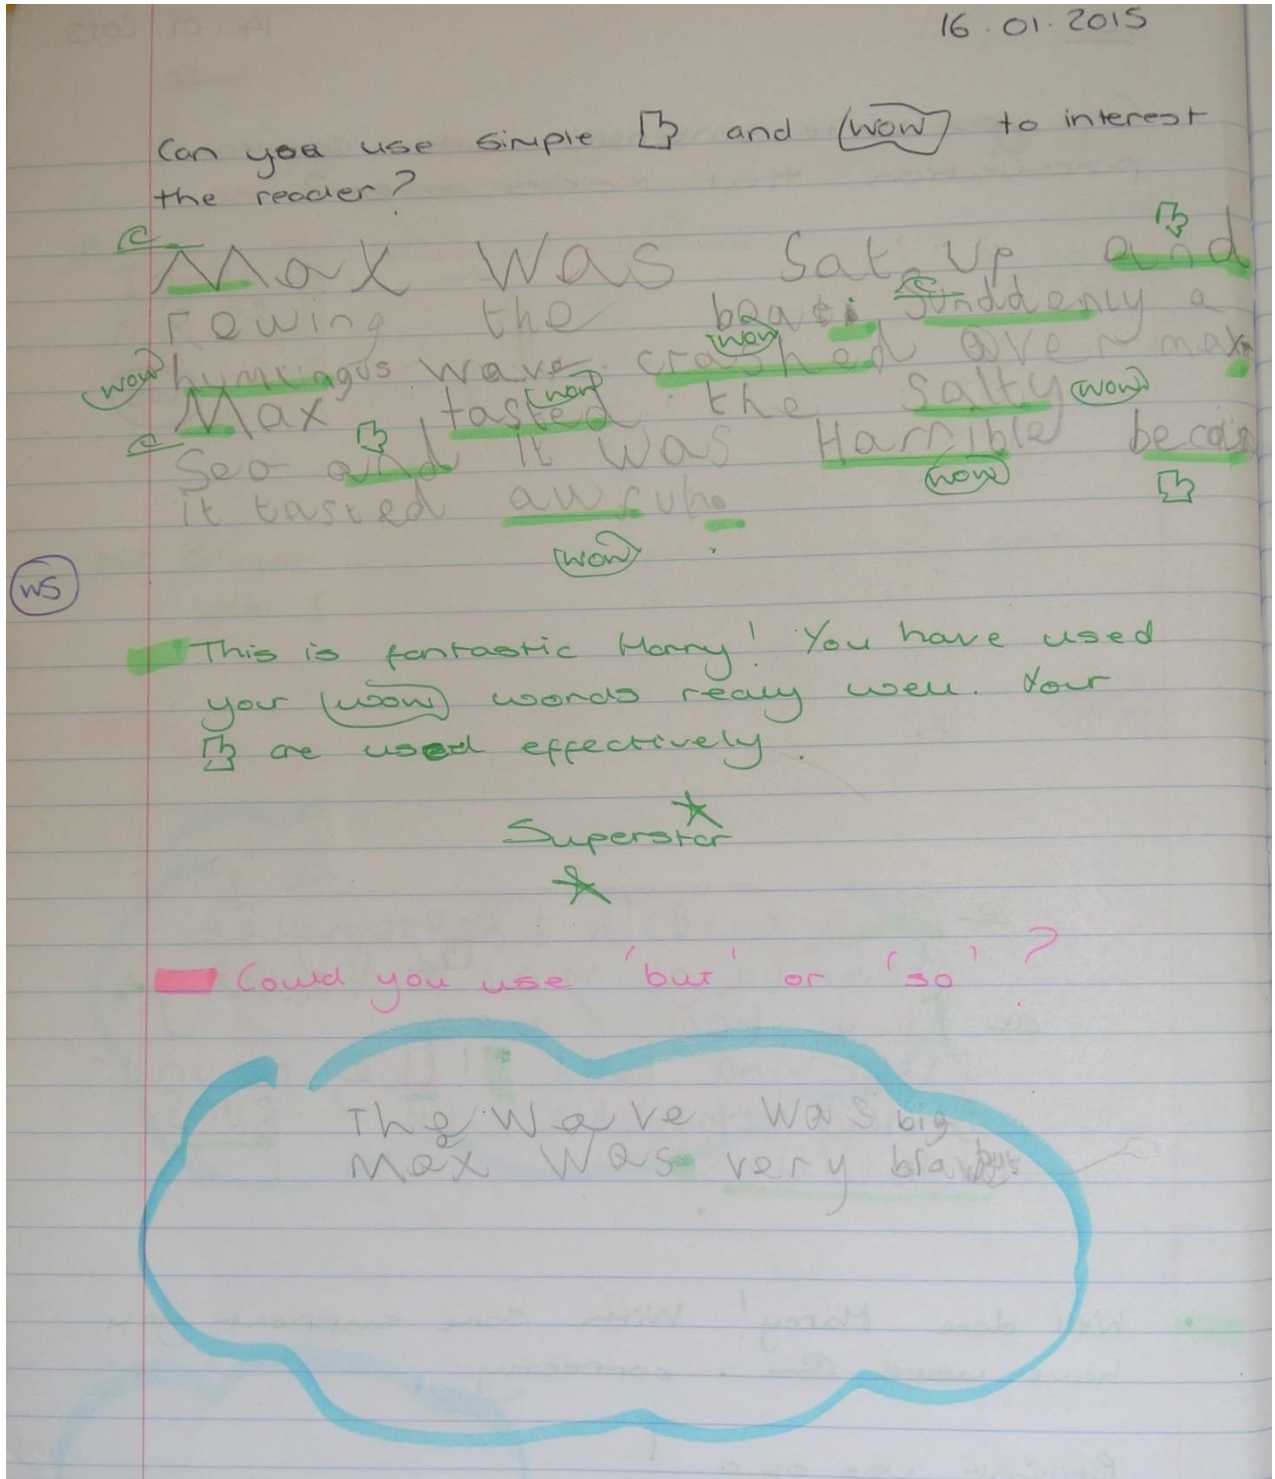 16.01.2015
Can you use simple and wow to interest
the reader?
Max was sat up and
rowing the boat. Sunddenly a
humungos wave crashed over max.
wow
wow
Max tasted the salty wow
wow
Seo and it was Harrible
wow
it tasted
wow
WS
This is fantastic Harry! You have used
your wow words really well. Your
are used effectively.
Superstar
Could you use 'but' or 'so'?
The wave was big
Max was very
but